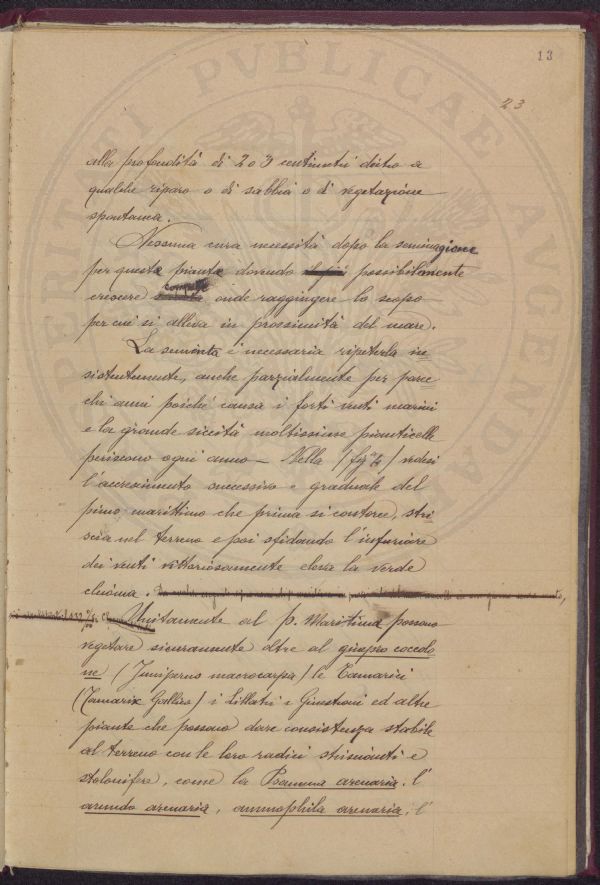 13
23
alla profondità di 2 o 3 centimetri dietro a
qualche riparo o di sabbia o di vegetazione
spontanea.
Nessuna cura necessita dopo la seminagione
per questa pianta dovendo possibilmente
crescere compatte onde raggiungere lo scopo
per cui si alleva in prossimità del mare.
La sementa è necessaria ripeterla in
sistentemente, anche parzialmente per parec
chi anni poiché causa i forti venti marini
e la grande siccità moltissime pianticelle
periscono ogni anno — Nella / fig / vedesi
l'accrescimento successivo e graduale del
pino marittimo che prima si contorce, stri
scia nel terreno e poi sfidando l'infuriare
dei venti vittoriosamente eleva la verde
chioma.
Unitamente al p. Maritima possono
vegetare sicuramente oltre al ginepro coccolo
ne (Juniperus macrocarpa) le Tamarici
(Tamarix Gallica) i Lillatri i Ginestroni ed altre
piante che possono dare consistenza stabile
al terreno con le loro radici striscianti e
stolonifere, come la Psamma arenaria, l'
arundo arenaria, ammophila arenaria, l'
PUBLICAE